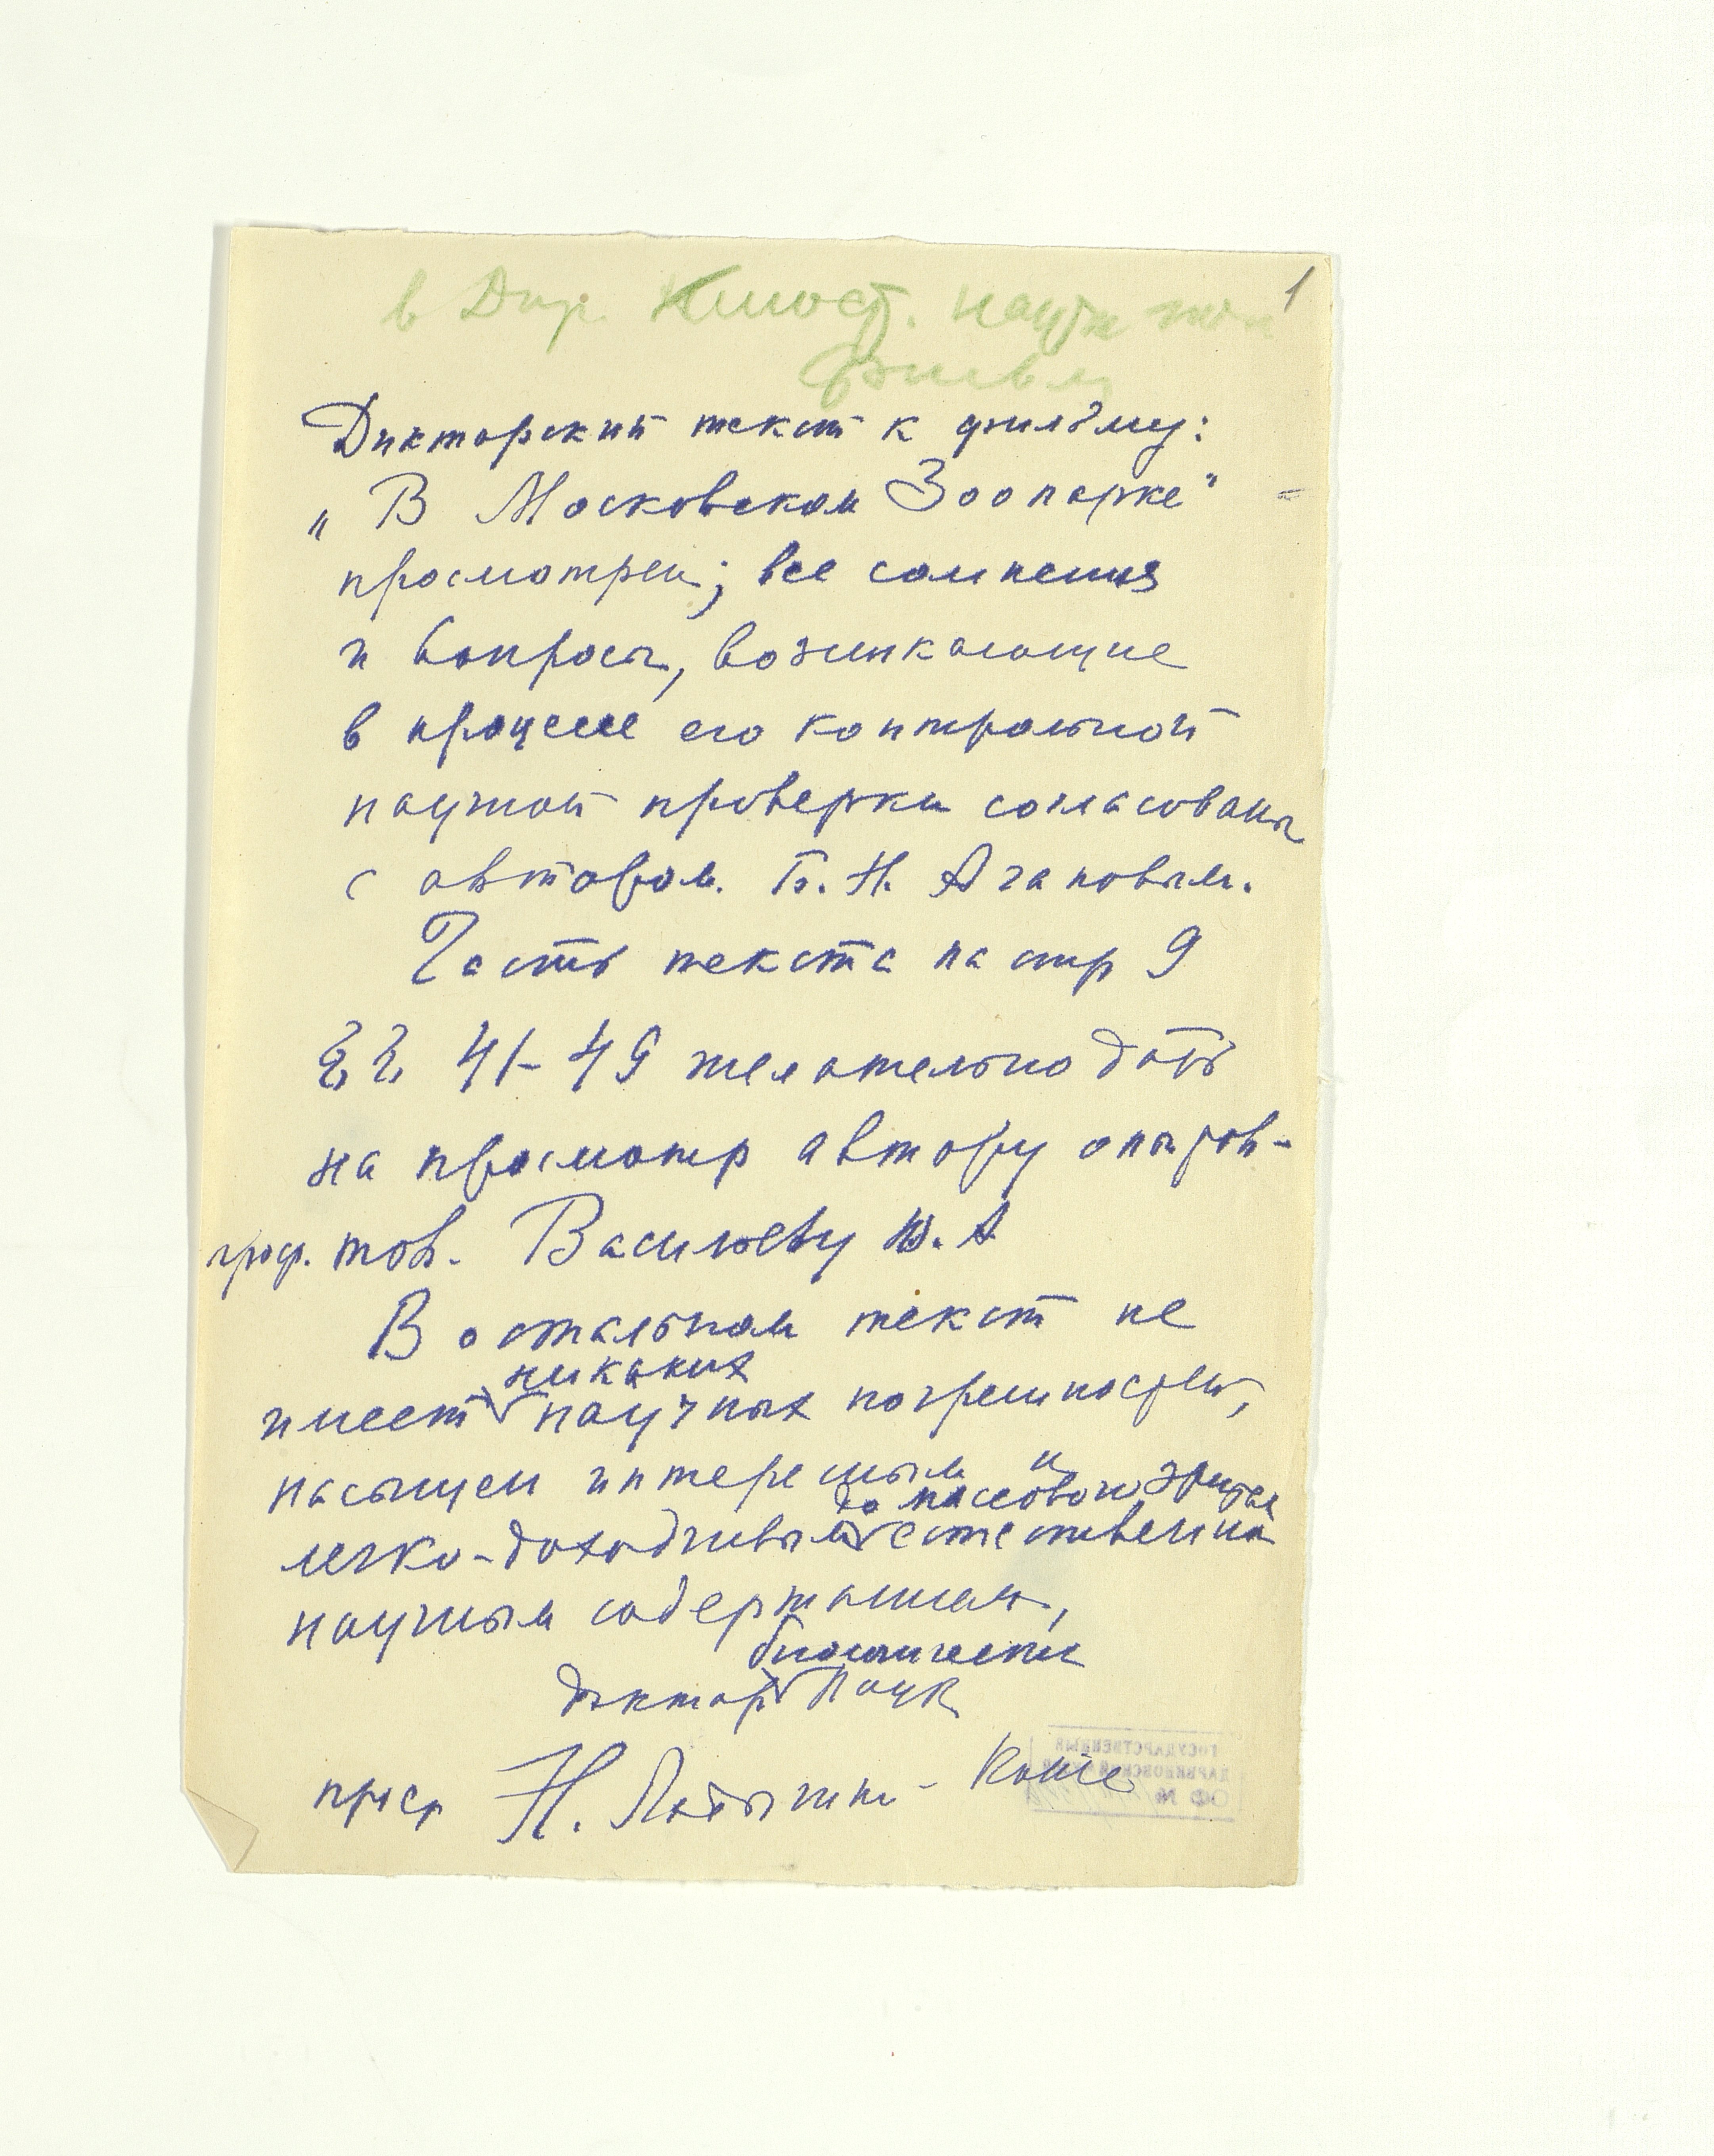 1
в Дир. Киност. научн поп
фильм
Дикторский текст к фильму:
„В Московском Зоопарке" -
просмотрен; все сомнения
и вопросы, возникающие
в процессе его контрольной
научной проверки согласованы
с автором Б. Н. Агаповым.
Часть текста на стр 9
41-49 желательно дать
на просмотр автору опытов-
проф. тов. Васильеву Ю. А
В остальном текст не
никаких
имеет научных погрешностей,
насыщен интересным и
до массового зрителя
легко-доходчивым естественно
научным содержанием,
биологических
доктор наук
проф Н. Ладыгина - Котс
ГОСУДАРСТВЕННЫЙ
ДАРВИНОВСКИЙ МУЗЕЙ
ОФ №